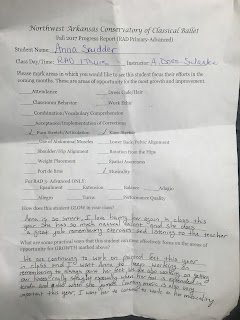 Northwest Arkansas Conservatory of Classical Ballet
Fall 2017 Progress Report (RAD Primary-Advanced)
Student Name: Anna Scudder
Class Day/Time: RAD 1 Thurs Instructor: A. Doss
Please mark areas in which you would like to see this student focus their efforts in the
coming months. These are areas of opportunity for the most growth and improvement.
Attendance Dress Code/Hair
Classroom Behavior Work Ethic
Combination/Vocabulary Comprehension
Acceptance/Implementation of Corrections
Foot Stretch/Articulation Knee Stretch
Use of Abdominal Muscles Lower Back/Pelvic Alignment
Shoulder/Hip Alignment Rotation from the Hips
Weight Placement Spatial Awareness
Port de Bras Musicality
For RAD 3-Advanced ONLY:
Epaulement Extension Balance Adagio
Allegro Turns Performance Quality
How does this student GLOW in your class?
Anna is so smart. I love having her again in class this
year. She has so much natural talent and she does
a great job remembering exercises and listening to the teacher
What are some practical ways that this student can more effectively focus on the areas of
opportunity for GROWTH marked above?
We are continuing to work on pointed feet this year
in class and I want Anna to keep working on
remembering to always point her feet. We are also working on getting
our knees really straight especially when our foot is extended in
tendu and good when she jumps. Counting music is also very
important this year. I want her to continue to work on her musicality